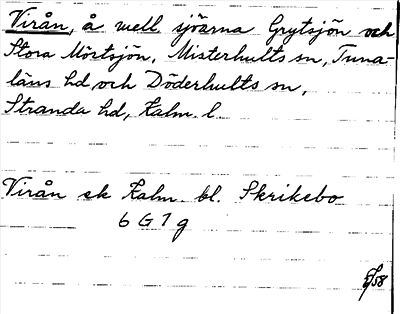 Virån, å mell sjöarna Grytsjön och
Stora Mörtsjön, Misterhults sn, Tuna-
läns hd och Döderhults sn,
Stranda hd, Kalm. l.
Virån ek Kalm. bl. Skrikebo
6 G 7 g